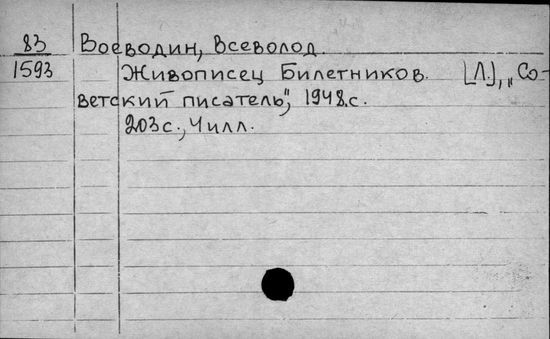 83 Воеводин, Всеволод.
1593 Живописец Билетников. [Л.], „Со-
ветский писатель", 1948.с.
203с., 4илл.